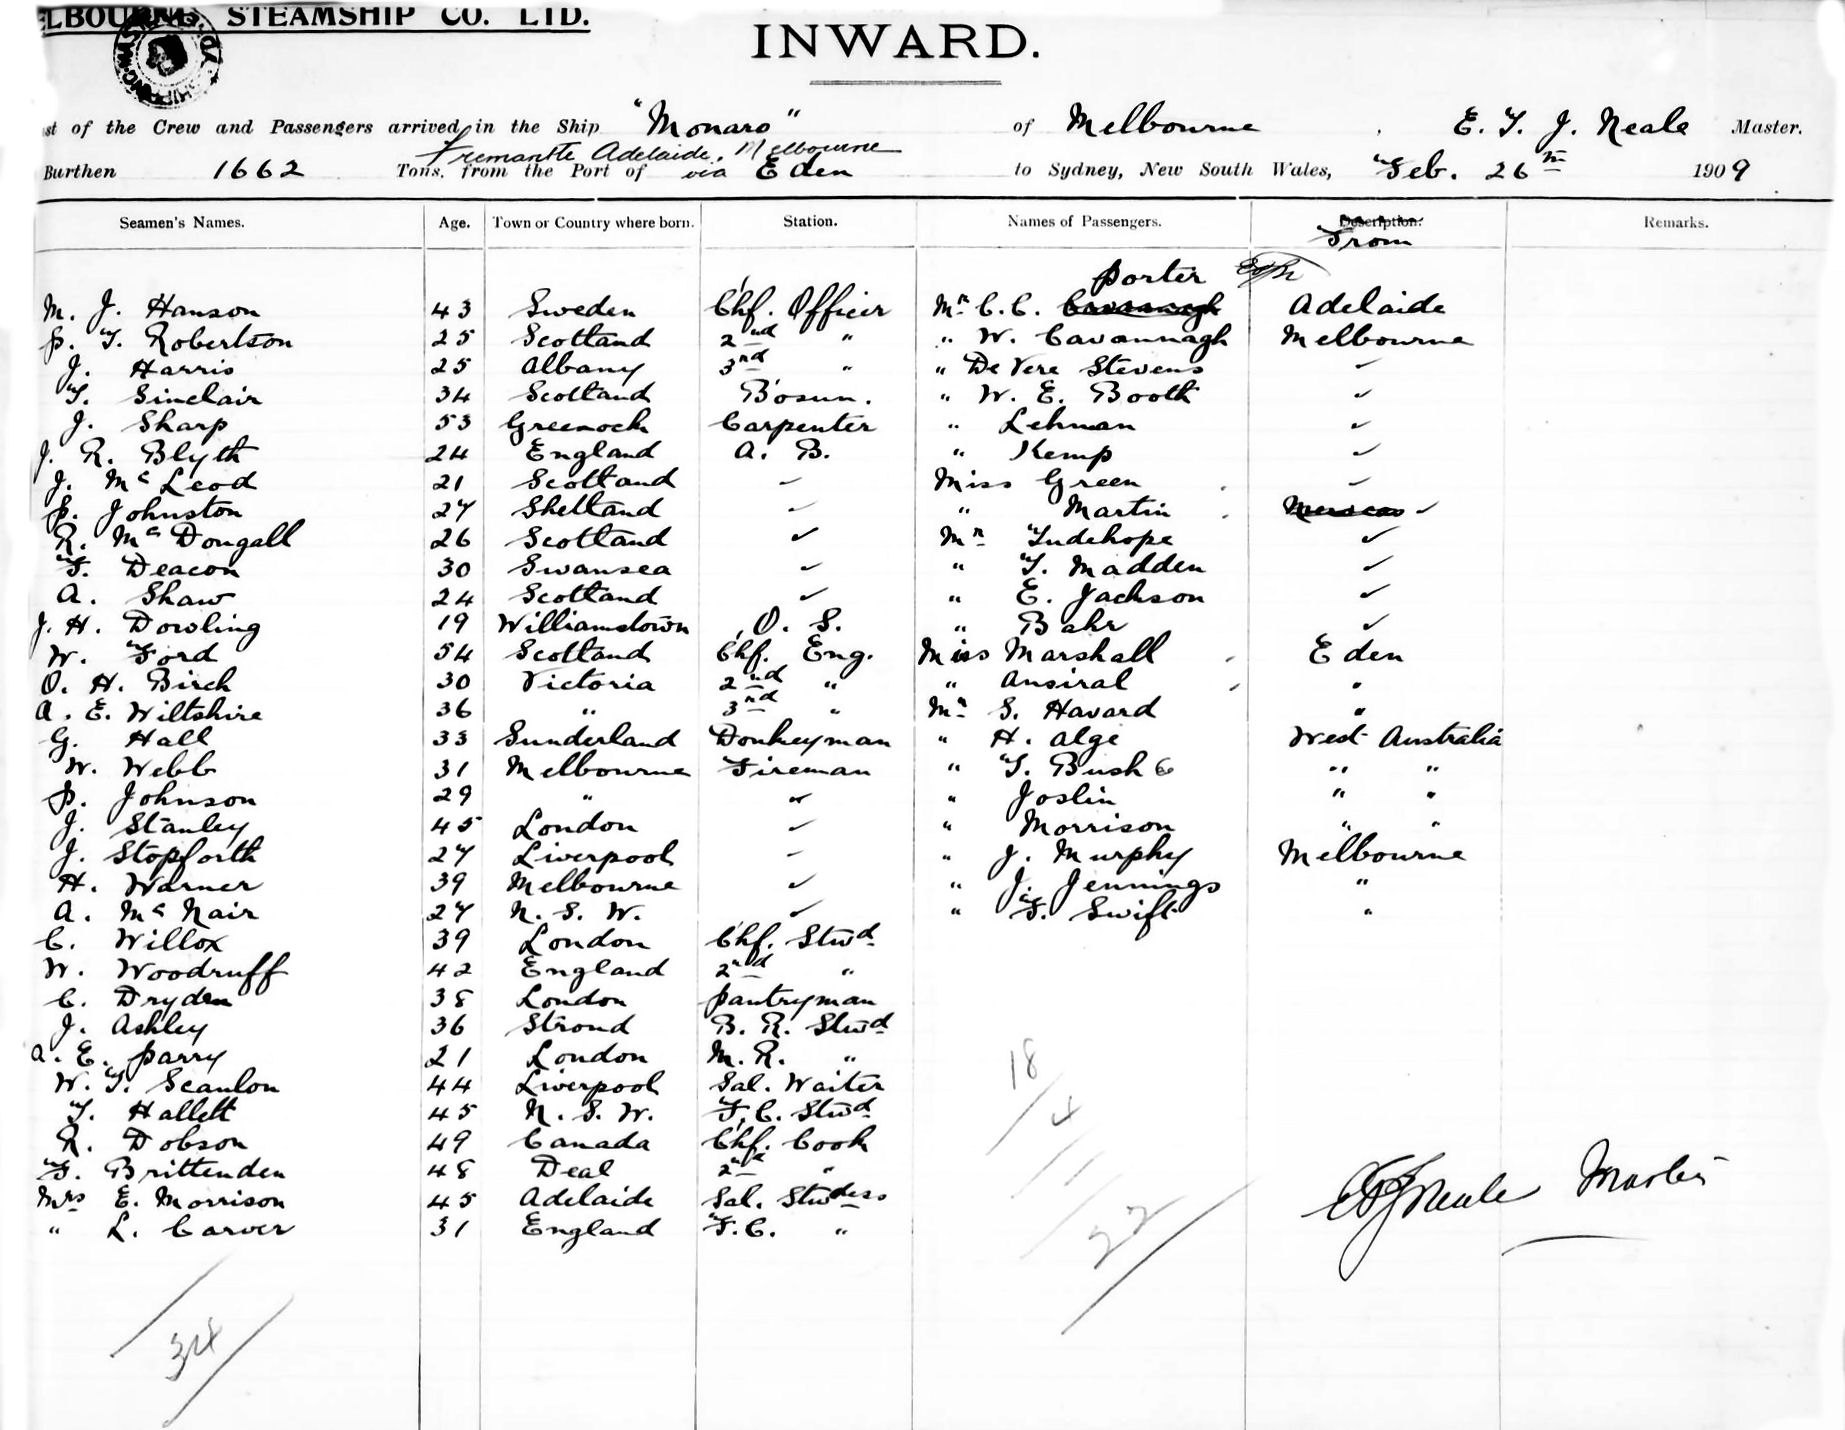 ELBOURNE STEAMSHIP CO. LTD.
INWARD.
st of the Crew and Passengers arrived in the Ship "Monaro" of Melbourne . E. T. J. Neale Master.
Fremantle Adelaide, Melbourne
Burthen 1662 Tons, from the Port of via Eden to Sydney, New South Wales, Feb. 26th 1909.
Seamen's Names. Age. Town or Country where born. Station. Names of Passengers. Description. Remarks.
From
Porter
M. J. Hanson 43 Sweden Chf. Officer Mr C. C. Cavanagh Adelaide
P. T. Robertson 25 Scotland 2nd " " W. Cavannagh Melbourne
J. Harris 25 Albany 3rd " " De Vere Stevens ✓
T. Sinclair 34 Scotland Bosun. " W. E. Booth ✓
J. Sharp 53 Greenock Carpenter " Lehman ✓
J. R. Blyth 24 England A. B. " Kemp ✓
J. McLeod 21 Scotland ✓ Miss Green ✓
P. Johnston 27 Shetland ✓ " Martin ✓
R. McDougall 26 Scotland ✓ Mr Tudehope ✓
F. Deacon 30 Swansea ✓ " T. Madden ✓
A. Shaw 24 Scotland ✓ " E. Jackson ✓
J. H. Dowling 19 Williamstown O. S. " Bahr ✓
W. Ford 54 Scotland Chf. Eng. Miss Marshall Eden
O. H. Birch 30 Victoria 2nd " " Ansiral "
A. E. Wiltshire 36 " 3rd " Mr S. Havard "
G. Hall 33 Sunderland Donkeyman " H. Alge West Australia
W. Webb 31 Melbourne Fireman " T. Bush " "
P. Johnson 29 " ✓ " Joslin " "
J. Stanley 45 London ✓ " Morrison " "
J. Stopforth 27 Liverpool ✓ " J. Murphy Melbourne
H. Warner 39 Melbourne ✓ " J. Jennings "
A. McNair 27 N. S. W. ✓ " F. Swift "
C. Willox 39 London Chf. Stwd
W. Woodruff 42 England 2nd "
C. Dryden 38 London Pantryman
J. Ashley 36 Stroud B. R. Stwd
A. E. Parry 21 London M. R. "
W. T. Scanlon 44 Liverpool Sal. Waiter
T. Hallett 45 N. S. W. F. C. Stwd
R. Dobson 49 Canada Chf. Cook
F. Brittenden 48 Deal 2nd "
Mrs E. Morrison 45 Adelaide Sal. Stwdess
" L. Carver 31 England F. C. "
18
4
22
34
ETJ Neale Master